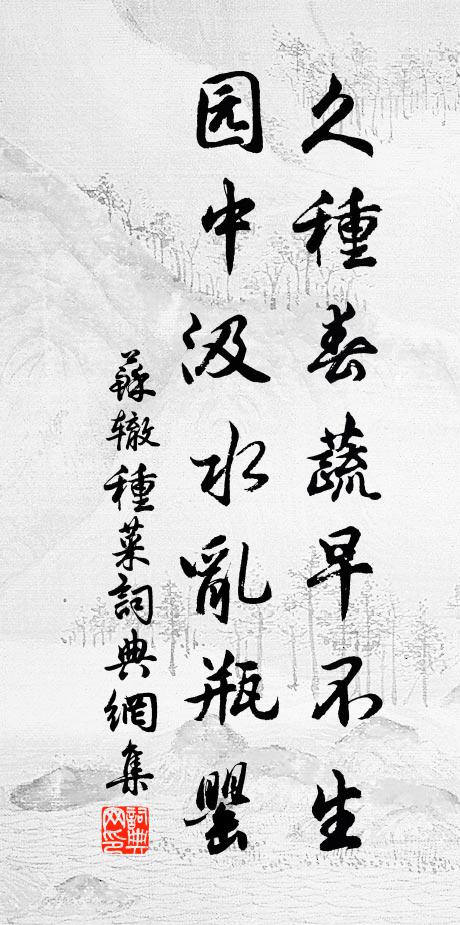 久種春蔬早不生
园中汲水亂瓶罌
蘇辙種菜詞典網集
詞典网印